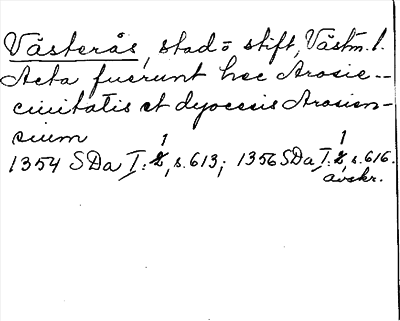 Västerås, stad = stift, Västm. l.
Acta fuerunt hec Arosie --
ciuitatis et dyocesis Arosien-
sium
1354 SDa I:1, s. 613; 1356 SDa I:1, s. 616.
avskr.